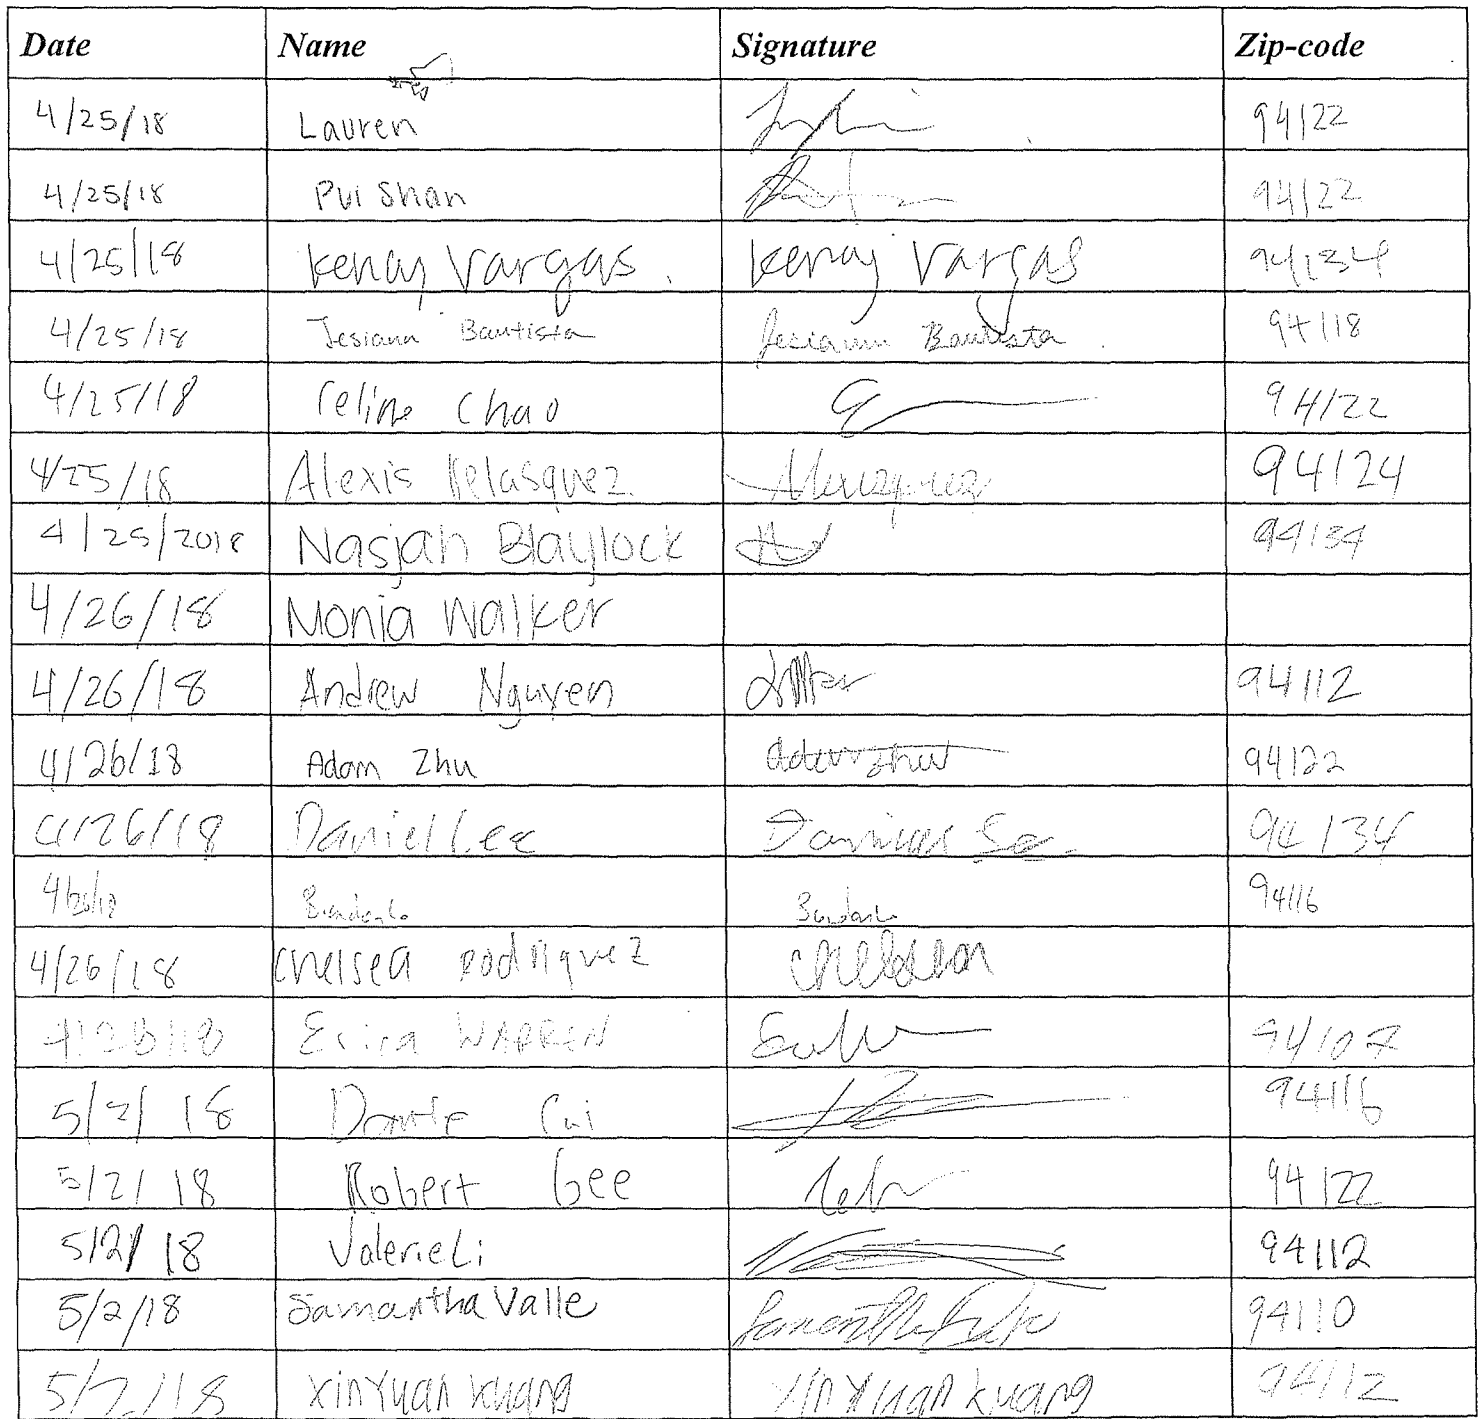 Date Name Signature Zip-code
4/25/18 Lauren 94122
4/25/18 Pui Shan 94122
4/25/18 Kenay Vargas. Kenay Vargas 94134
4/25/18 Jesiana Bautista Bautista. 94118
4/25/18 Celine Chao 94122
4/25/18 Alexis Velasquez 94124
4/25/2018 Nasjah Blaylock 94134
4/26/18 Monia Walker
4/26/18 Andrew Nguyen 94112
4/26/18 Adam Zhu Adam Zhu 94122
4/26/18 Daniel Lee 94134
4/26/18 94116
4/26/18 Chelsea Rodriquez Chelsea 
Erica WARREN 94107
5/2/18 Cui 94116
5/2/18 Robert Gee 94122
5/2/18 Valerie Li 94112
5/2/18 Samantha Valle Samantha 94110
5/2/18 XinYuan Kuang XinYuan Kuang 94112